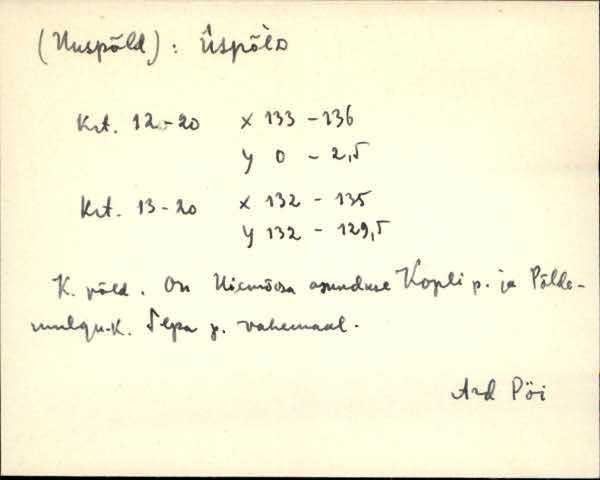 (Uuspõld): Üspõlᴅ
Krt. 12-20 x 133 - 136
y 0 - 2,5
Krt. 13-20 x 132 - 135
y 132 - 129,5
K. põld. On Uiemõisa asunduse Kopli p. ja Põlde-
mulgu-k. p. vahemaal.
Ard Pöi